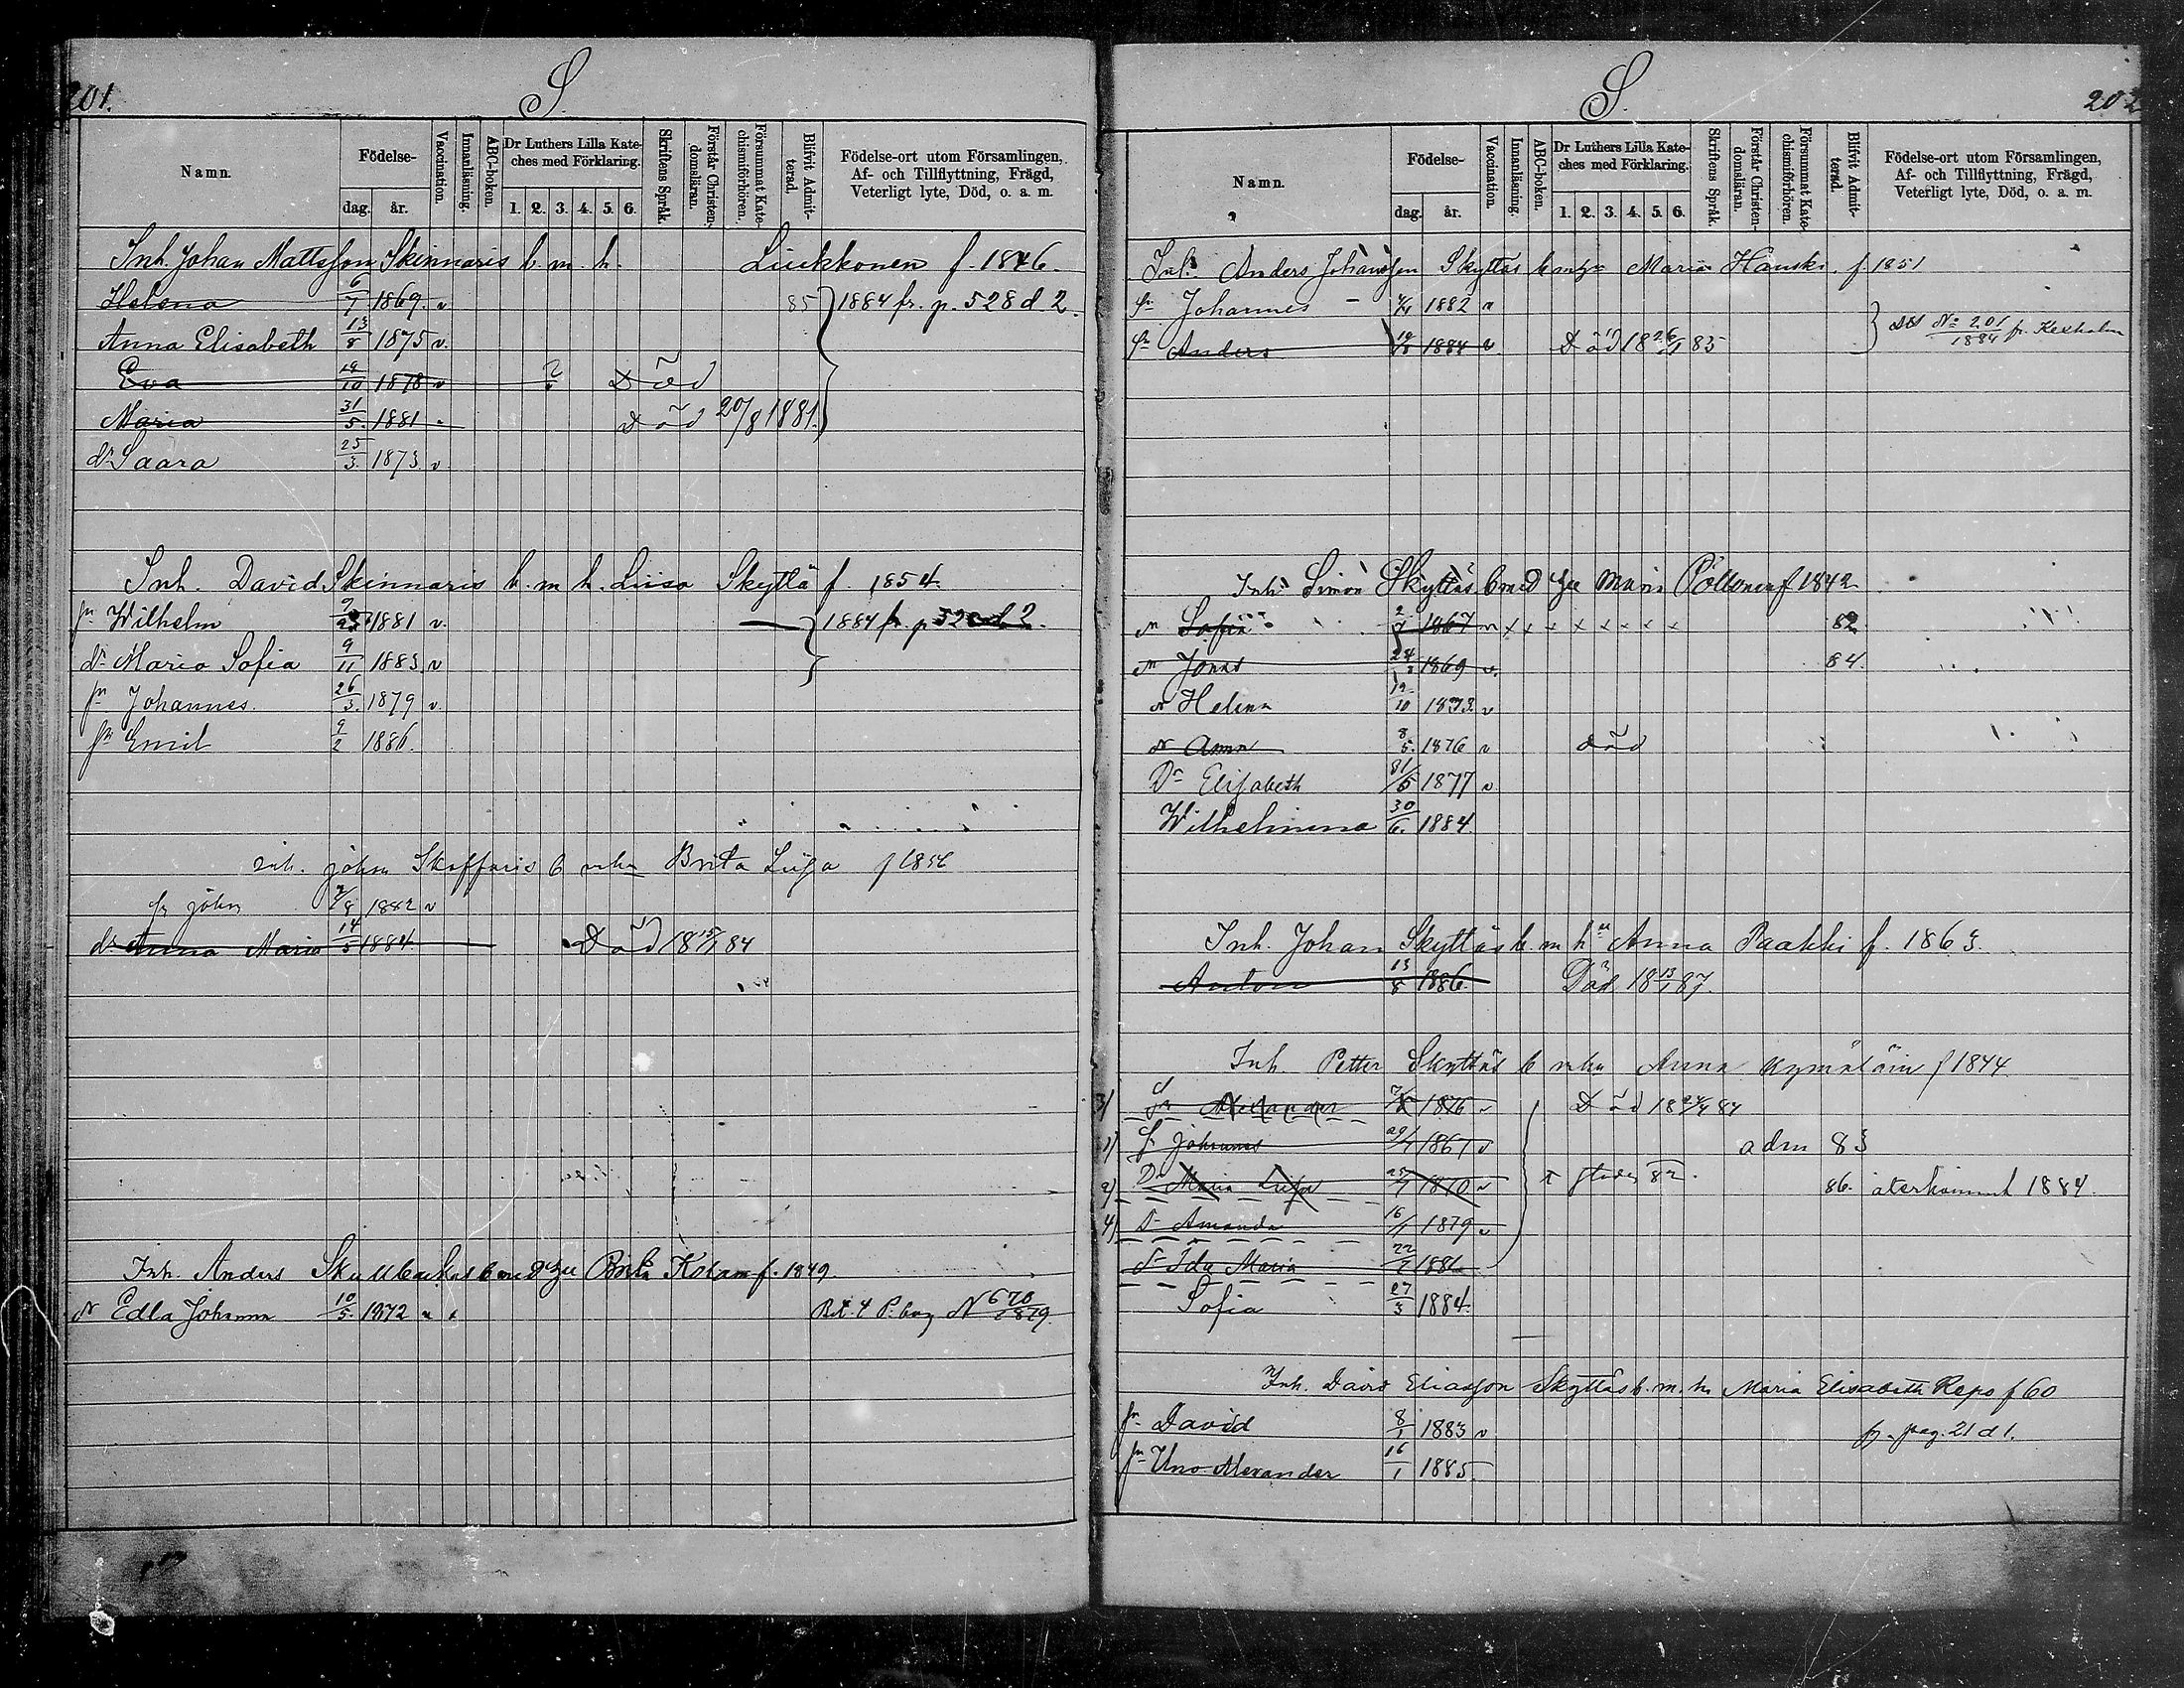 201.
S.
Namn.
Födelse-
dag. år.
Vaccination.
Innanläsning.
ABC-boken.
Dr Luthers Lilla Kate-
ches med Förklaring.
1. 2. 3. 4. 5. 6.
Skriftens Språk.
Förstår Christen-
domsläran.
Försummat Kate-
chismiförhören.
Blifvit Admit-
terad.
Födelse-ort utom Församlingen,
Af- och Tillflyttning, Frägd,
Veterligt lyte, Död, o. a. m.
Inh. Johan Mattsson Skinnaris b. m. h. Liukkonen f. 1846.
Helena 6/7 1869. v 85 1884 fr. p. 528 d. 2.
Anna Elisabeth 13/8 1875 v.
Eva 14/10 1878 v Död
Maria 31/5 1881 Död 20/8 1881.
dr Saara 25/3 1873. v
Inh. David Skinnaris b. m. h. Liisa Skyttä f. 1854.
sn Wilhelm 1881 v. 1884 fr. p 52 d 2.
dr Maria Sofia 9/11 1883 v
sn Johannes 26/3 1879 v.
sn Emil 9/2 1886.
inh. johan Skaffaris b mhu Brita Liisa f 1856
sn johan 7/8 1882 v
dr Anna Maria 14/5 1884. Död 18 15/1 84
Inh. Anders Skullbackas b med hu Brita f. 1849.
dr Edla Johanna 10/5 1872 Bet. 4 P. bog N 670/1879.
S.
202
Namn.
Födelse-
dag. år.
Vaccination.
Innanläsning.
ABC-boken.
Dr Luthers Lilla Kate-
ches med Förklaring.
1. 2. 3. 4. 5. 6.
Skriftens Språk.
Förstår Christen-
domsläran.
Försummat Kate-
chismiförhören.
Blifvit Admit-
terad.
Födelse-ort utom Församlingen,
Af- och Tillflyttning, Frägd,
Veterligt lyte, Död, o. a. m.
Inh. Anders Johansson Skyttäs b mhu Maria Hanski f. 1851
sn Johannes 1882
sn Anders 1884 v Död 18 26/1 85 No 201/1884 fr. Kexholm
Inh. Simon Skyttäs b med hu Maria Pöllönen f 1842
dr Sofia 2/7 1867 v x x x x x x x x 82
sn Jonas 24/3 1869 v. 84.
dr Helena 19/10 1873. v
dr Anna 8/5 1876 v död
Dr Elisabeth 31/5 1877 v
Wilhelmina 30/6 1884.
Inh. Johan Skyttäs b. m hu Anna Paakki f. 1863.
Anton 13/8 1886. Död 18 13/1 87.
Inh Petter Skyttäs b mhu Anna Kymäläin f 1844
3) Sn Alexander 1876 v Död 18 24/4 84
1) S johannes 29/7 1867 v adm 83
2) Dr Maria Liisa 1870 v 82. 86. återkommit 1884.
4) D Amanda 16/1 1879 v
dr Ida Maria 1881
Sofia 27/3 1884.
Inh. David Eliasson Skyttäs b. m. hu Maria Elisabeth Repo f 60
sn David 8/1 1883 v fr. pag. 21 d 1.
sn Uno Alexander 16/1 1885.